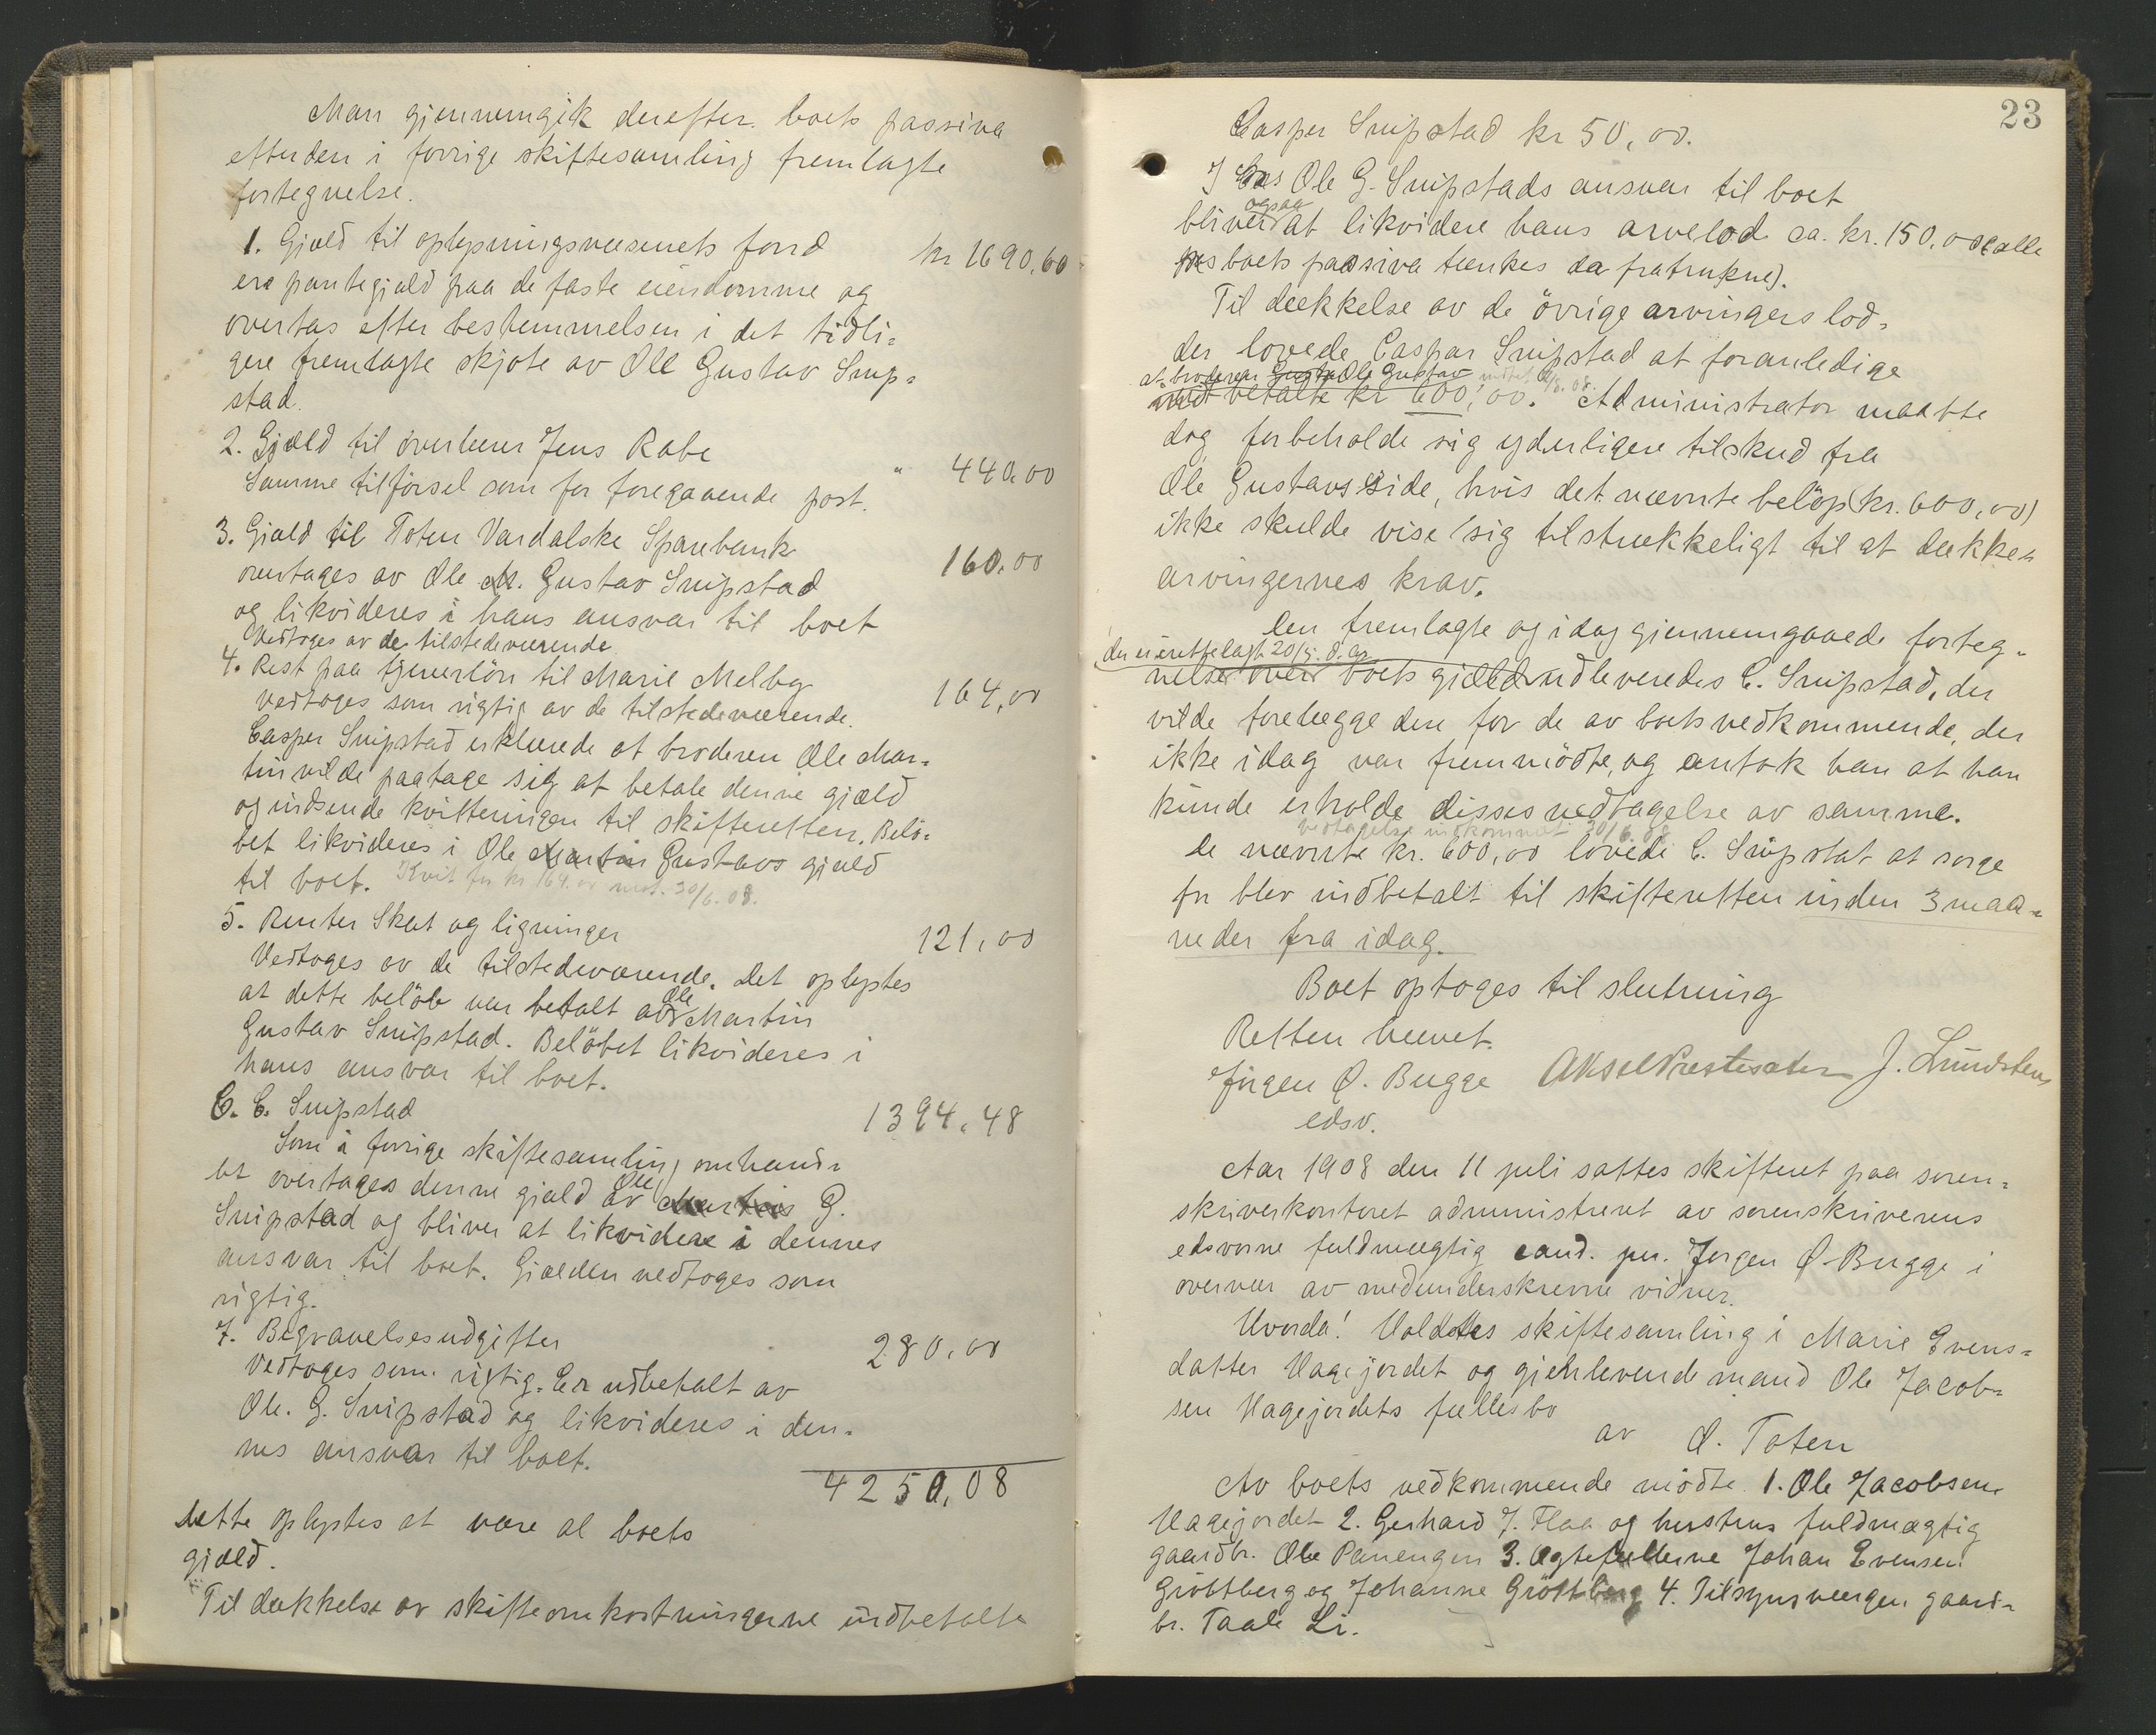 Man gjennemgik derefter boets passiva
efter den i forrige skiftesamling fremlagte
fortegnelse.
1. Gjæld til oplysningsvæsenets fond kr 1690,60
er pantegjæld paa de faste eiendomme og
overtas efter bestemmelsen i det tidli=
gere fremlagte skjøte av Ole Gustav Snip=
stad.
2. Gjæld til overlærer Jens Rabe " 440,00
Samme tilförsel som for foregaaende post.
3. Gjæld til Toten Vardalske Sparebank 160,00
overtages av Ole M. Gustav Snipstad
og likvideres i hans ansvar til boet
Vedtoges av de tilstedeværende
4. Rest paa tjenerlön til Marie Melby 164,00
vedtoges som rigtig av de tilstedeværende.
Casper Snipstad erklærede at broderen Ole Mar=
tin vilde paatage sig at betale denne gjæld
og indsende kvitteringen til skifteretten. Belö=
bet likvideres i Ole Martin Gustavs gjæld
til boet. Kvit for kr 164.00 mot. 30/6.08.
5. Renter Skat og ligninger 121,00
Vedtoges av de tilstedeværende. Det oplystes
at dette belöb var betalt av Ole Martin
Gustav Snipstad. Belöbet likvideres i
hans ansvar til boet.
6. C. Snipstad 1394,48
Som i forrige skiftesamling omhand=
let overtages denne gjæld av Ole Martin G.
Snipstad og bliver at likvidere i dennes
ansvar til boet. Gjælden vedtoges som
rigtig.
7. Begravelsesudgifter 280,00
Vedtoges som rigtig. Er udbetalt av
Ole. G. Snipstad og likvideres i den=
nes ansvar til boet.
4250,08
Dette oplystes at være al boets
gjæld.
Til dækkelse av skifteomkostningerne indbetalte
23
Casper Snipstad kr 50,00.
I Ole G. Snipstads ansvar til boet
bliver ogsaa at likvidere hans arvelod ca. kr. 150,00 (alle
boets passiva tænkes da fratrukne).
Til dækkelse av de övrige arvingers lod=
der lovede Caspar Snipstad at foranledige
at broderen Ole Gustav
indbetalte kr 600,00. Administrator maatte
dog forbeholde sig yderligere tilskud fra
Ole Gustavs side, hvis det nævnte belöp (kr. 600,00)
ikke skulde vise sig tilstrækkeligt til at dække
arvingernes krav.
Den fremlagte og idag gjennemgaaede forteg=
der er irettelagt 20/5. d. a.
nelse over boets gjæld udleveredes C. Snipstad, der
vilde forelægge den for de av boets vedkommende, der
ikke idag var fremmödte, og antok han at han
kunde erholde disses vedtagelse av samme.
Vedtagelse indkommet 30/6.08
De nævnte kr. 600,00 lovede C. Snipstat at sørge
for blev indbetalt til skifteretten inden 3 maa=
neder fra idag.
Boet optoges til slutning
Retten hævet.
Jörgen Ø. Bugge Aksel Prestesæter J. Lundstens
edsv.
Aar 1908 den 11 juli sattes skifteret paa soren=
skriverkontoret administreret av sorenskriverens
edsvorne fuldmægtig cand. jur. Jørgen Ø. Bugge i
overvær av medunderskrevne vidner.
Hvorda! Holdtes skiftesamling i Marie Evens=
datter Hagejordet og gjenlevende mand Ole Jacob=
sen Hagejordets fællesbo
av Ø. Toten
Av boets vedkommende mödte 1. Ole Jacobsen
Hagejordet 2. Gerhard J. Flaa og hustrus fuldmægtig
gaardbr. Ole Panengen 3. Ægtefællerne Johan Evensen
Gröttberg og Johanne Gröttberg 4. Tilsynsværgen gaard=
br. Taale Li.